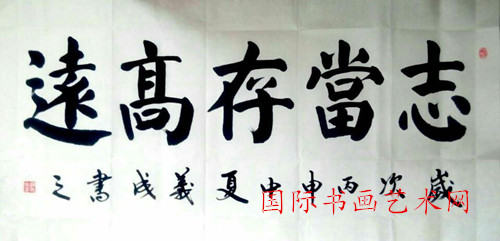 志當存高遠
歲次丙申中夏義成書之
国际书画艺术网